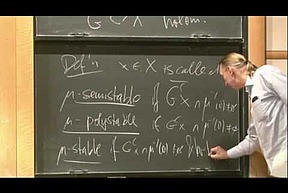 G^C X holom.
Def'n x ∈ X is called
μ-semistable if \overline{G^C x} ∩ μ^{-1}(0) ≠ ∅
μ-polystable if G^C x ∩ μ^{-1}(0) ≠ ∅
μ-stable if G^C x ∩ μ^{-1}(0) ≠ ∅ &